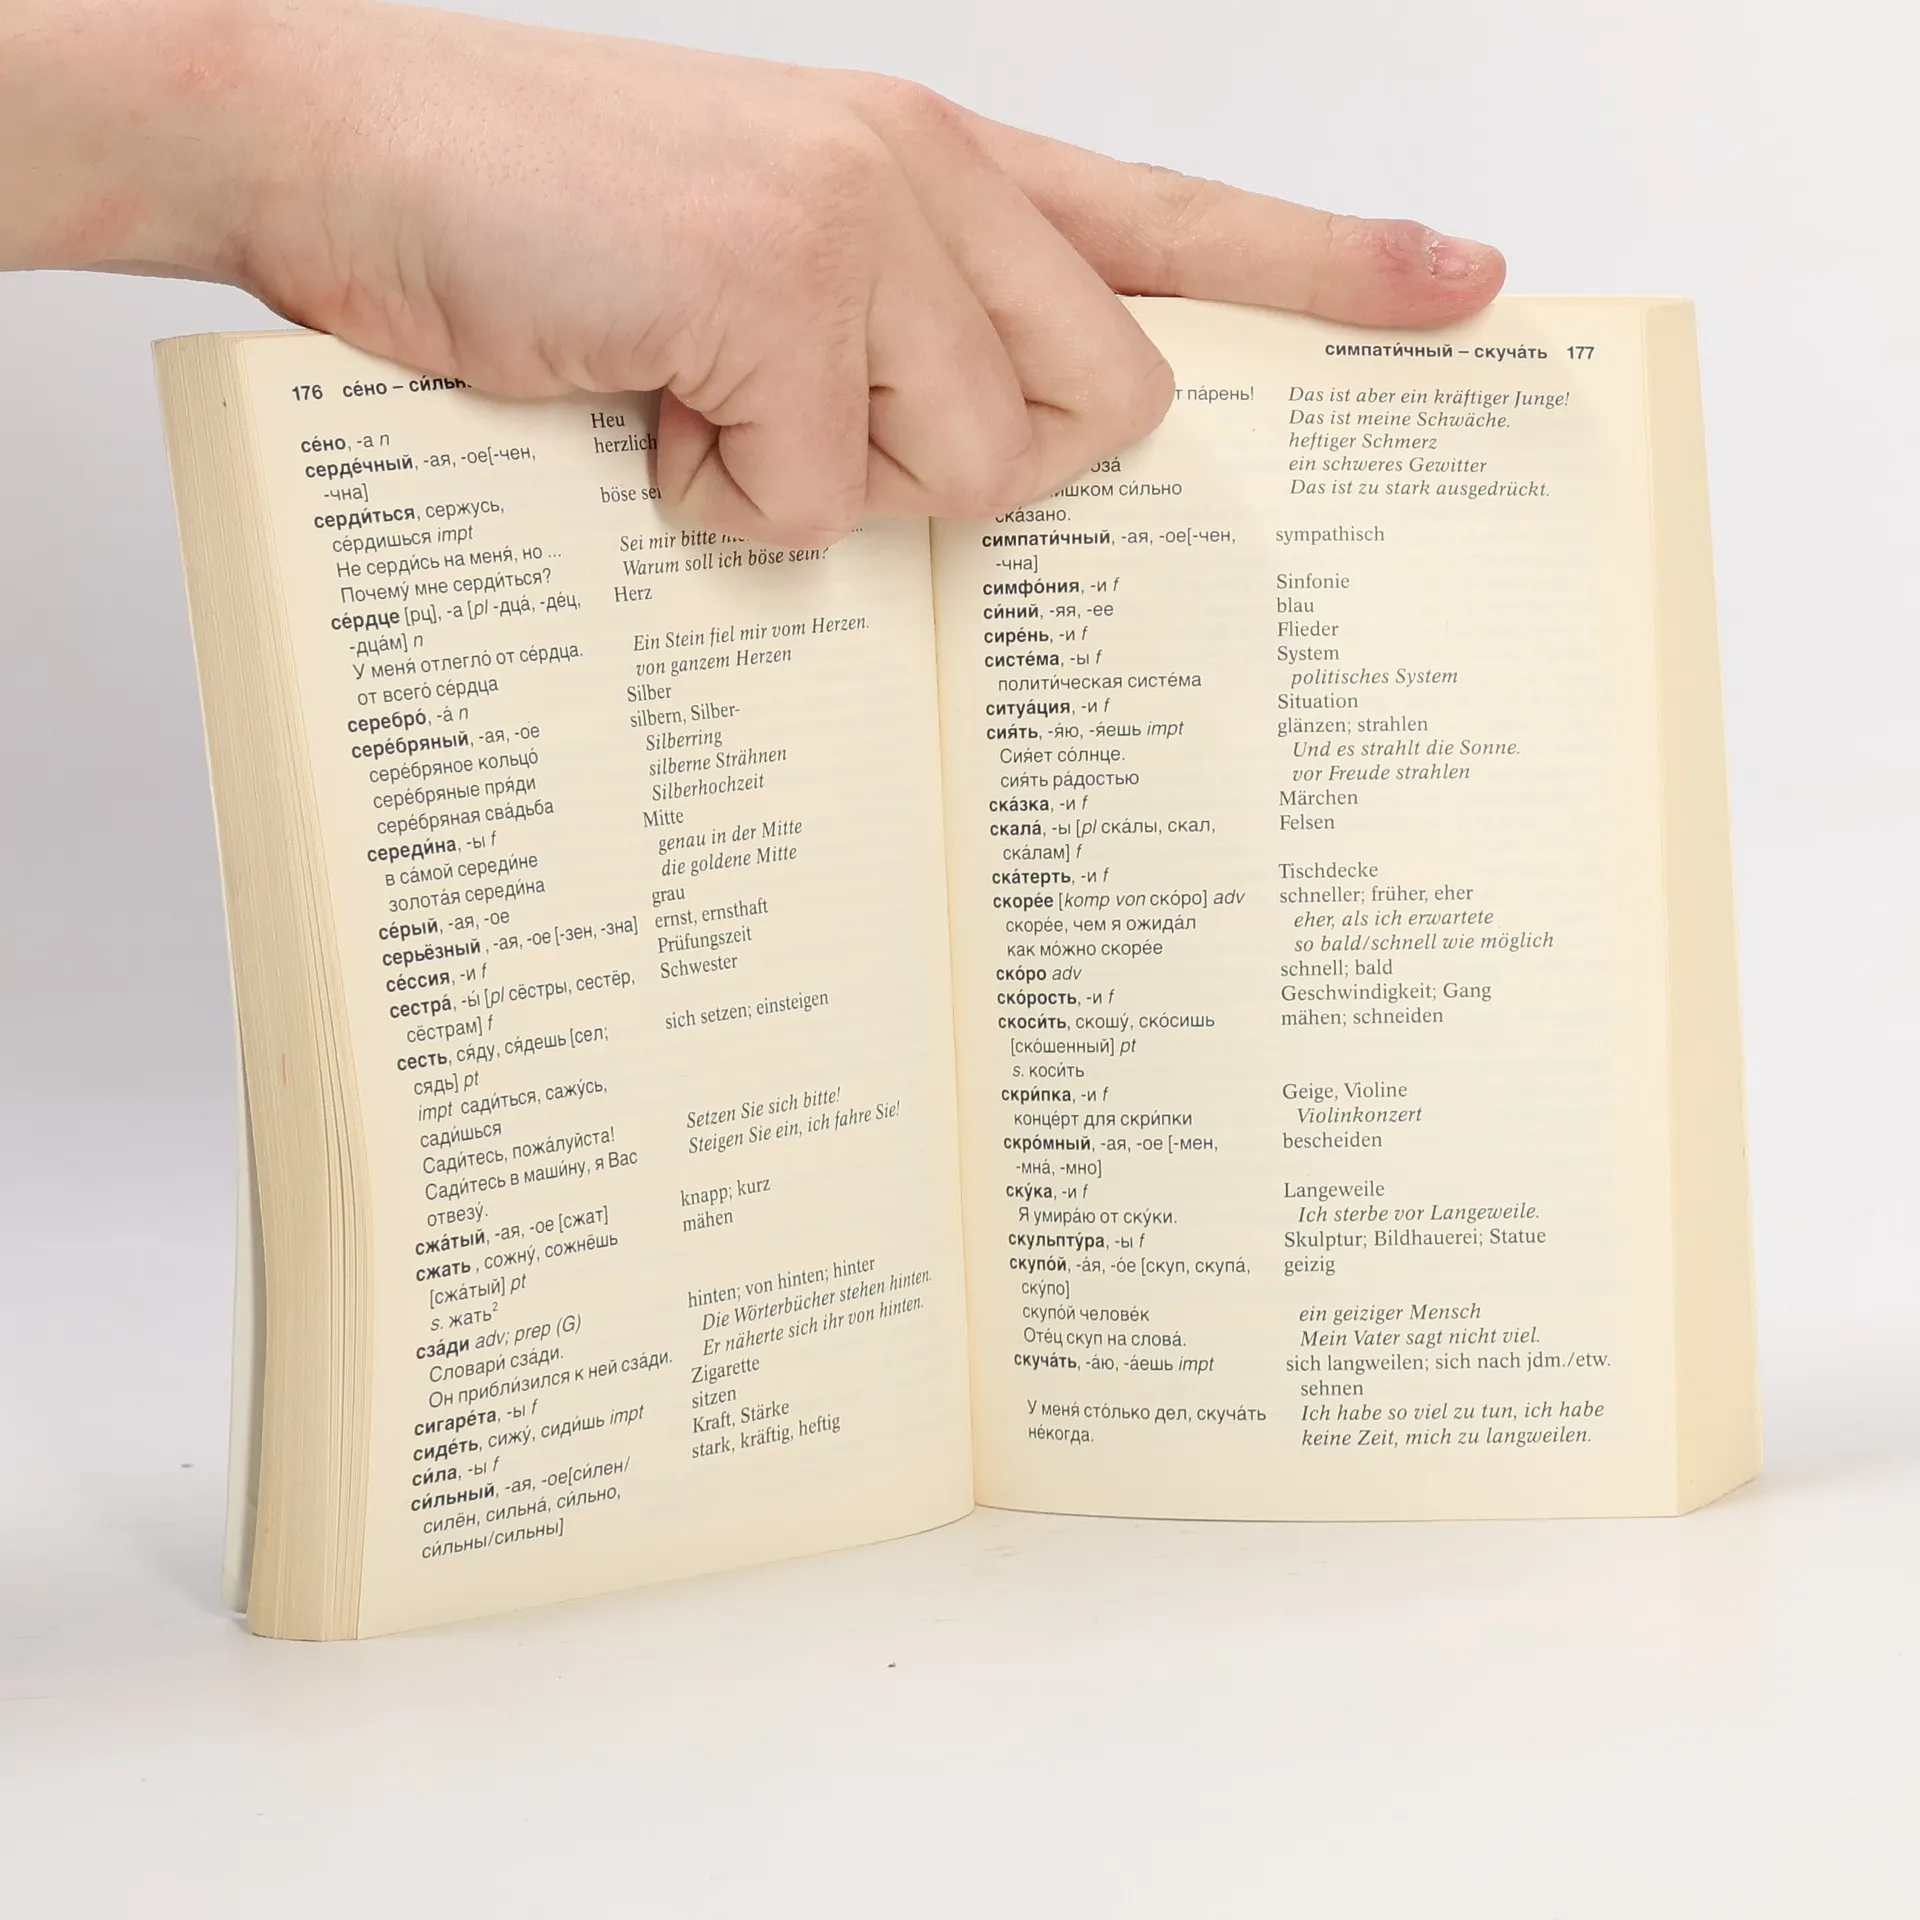 176 се́но –
Heu
се́но, -а n
herzlich
серде́чный, -ая, -ое[-чен,
-чна]
böse
серди́ться, сержусь,
се́рдишься impt
Не серди́сь на меня́, но ...
Sei mir bitte
Почему́ мне серди́ться?
Warum soll ich böse sein?
се́рдце [рц], -а [pl -дца́, -де́ц,
Herz
-дца́м] n
У меня́ отлегло́ от се́рдца.
Ein Stein fiel mir vom Herzen.
от всего́ се́рдца
von ganzem Herzen
серебро́, -а́ n
Silber
сере́бряный, -ая, -ое
silbern, Silber-
сере́бряное кольцо́
Silberring
сере́бряные пря́ди
silberne Strähnen
сере́бряная сва́дьба
Silberhochzeit
середи́на, -ы f
Mitte
в са́мой середи́не
genau in der Mitte
золота́я середи́на
die goldene Mitte
се́рый, -ая, -ое
grau
серьёзный , -ая, -ое [-зен, -зна]
ernst, ernsthaft
се́ссия, -и f
Prüfungszeit
сестра́, -ы́ [pl сёстры, сестёр,
Schwester
сёстрам] f
сесть, ся́ду, ся́дешь [сел;
sich setzen; einsteigen
сядь] pt
impt сади́ться, сажу́сь,
сади́шься
Сади́тесь, пожа́луйста!
Setzen Sie sich bitte!
Сади́тесь в маши́ну, я Вас
Steigen Sie ein, ich fahre Sie!
отвезу́.
сжа́тый, -ая, -ое [сжат]
knapp; kurz
сжать , сожну́, сожнёшь
mähen
[сжа́тый] pt
s. жать²
сза́ди adv; prep (G)
hinten; von hinten; hinter
Словари́ сза́ди.
Die Wörterbücher stehen hinten.
Он прибли́зился к ней сза́ди.
Er näherte sich ihr von hinten.
сигаре́та, -ы f
Zigarette
сиде́ть, сижу́, сиди́шь impt
sitzen
си́ла, -ы f
Kraft, Stärke
си́льный, -ая, -ое[си́лен/
stark, kräftig, heftig
силён, сильна́, си́льно,
си́льны/сильны]
симпати́чный – скуча́ть 177
па́рень!
Das ist aber ein kräftiger Junge!
Das ist meine Schwäche.
heftiger Schmerz
ein schweres Gewitter
си́льно
Das ist zu stark ausgedrückt.
ска́зано.
симпати́чный, -ая, -ое[-чен,
sympathisch
-чна]
симфо́ния, -и f
Sinfonie
си́ний, -яя, -ее
blau
сире́нь, -и f
Flieder
систе́ма, -ы f
System
полити́ческая систе́ма
politisches System
ситуа́ция, -и f
Situation
сия́ть, -я́ю, -я́ешь impt
glänzen; strahlen
Сия́ет со́лнце.
Und es strahlt die Sonne.
сия́ть ра́достью
vor Freude strahlen
ска́зка, -и f
Märchen
скала́, -ы [pl ска́лы, скал,
Felsen
ска́лам] f
ска́терть, -и f
Tischdecke
скоре́е [komp von ско́ро] adv
schneller; früher, eher
скоре́е, чем я ожида́л
eher, als ich erwartete
как мо́жно скоре́е
so bald/schnell wie möglich
ско́ро adv
schnell; bald
ско́рость, -и f
Geschwindigkeit; Gang
скоси́ть, скошу́, ско́сишь
mähen; schneiden
[ско́шенный] pt
s. коси́ть
скри́пка, -и f
Geige, Violine
конце́рт для скри́пки
Violinkonzert
скро́мный, -ая, -ое [-мен,
bescheiden
-мна́, -мно]
ску́ка, -и f
Langeweile
Я умира́ю от ску́ки.
Ich sterbe vor Langeweile.
скульпту́ра, -ы f
Skulptur; Bildhauerei; Statue
скупо́й, -а́я, -о́е [скуп, скупа́,
geizig
ску́по]
скупо́й челове́к
ein geiziger Mensch
Оте́ц скуп на слова́.
Mein Vater sagt nicht viel.
скуча́ть, -а́ю, -а́ешь impt
sich langweilen; sich nach jdm./etw.
sehnen
У меня́ сто́лько дел, скуча́ть
Ich habe so viel zu tun, ich habe
не́когда.
keine Zeit, mich zu langweilen.